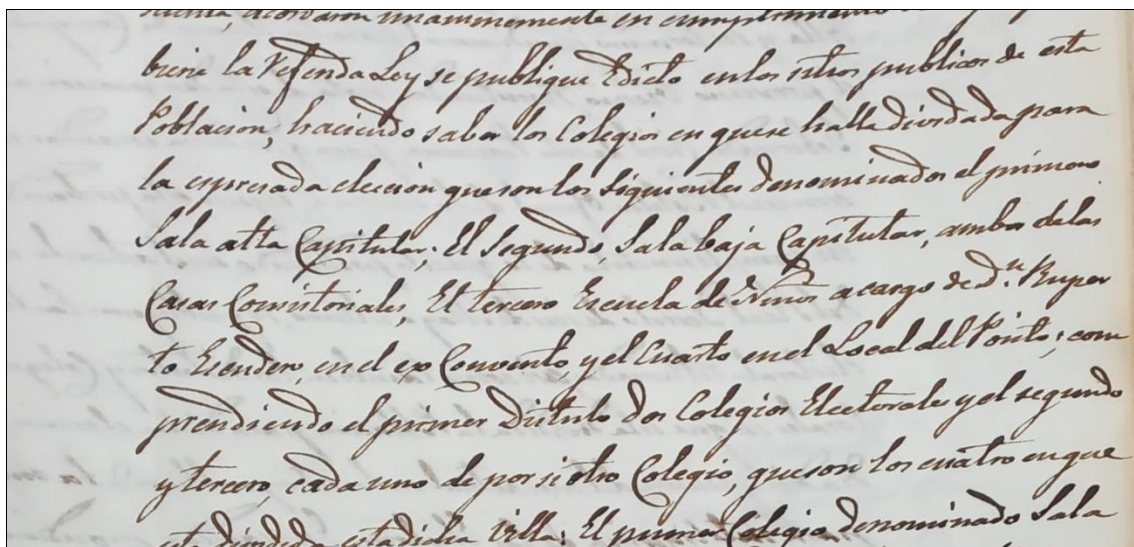 acordaron unanimemente en cumplimiento
biene la referida Ley se publique Edicto en los sitios publicos de esta
Poblacion, haciendo saber los Colegios en que se halla dividada para
la espresada eleccion que son los siguientes denominados el primero
Sala alta Capitular, El Segundo, Sala baja Capitular, ambos de las
Casas Consistoriales, El tercero Escuela de Niños a cargo de dn. Ruper
to Escudero, en el ex Convento, y el Cuarto en el Local del Posito; com
prendiendo el primer Distrito dos Colegios Electorales y el segundo
y tercero, cada uno de por si otro Colegio, que son los cuatro en que
esta dividida esta dicha villa: El primer Colegio denominado Sala